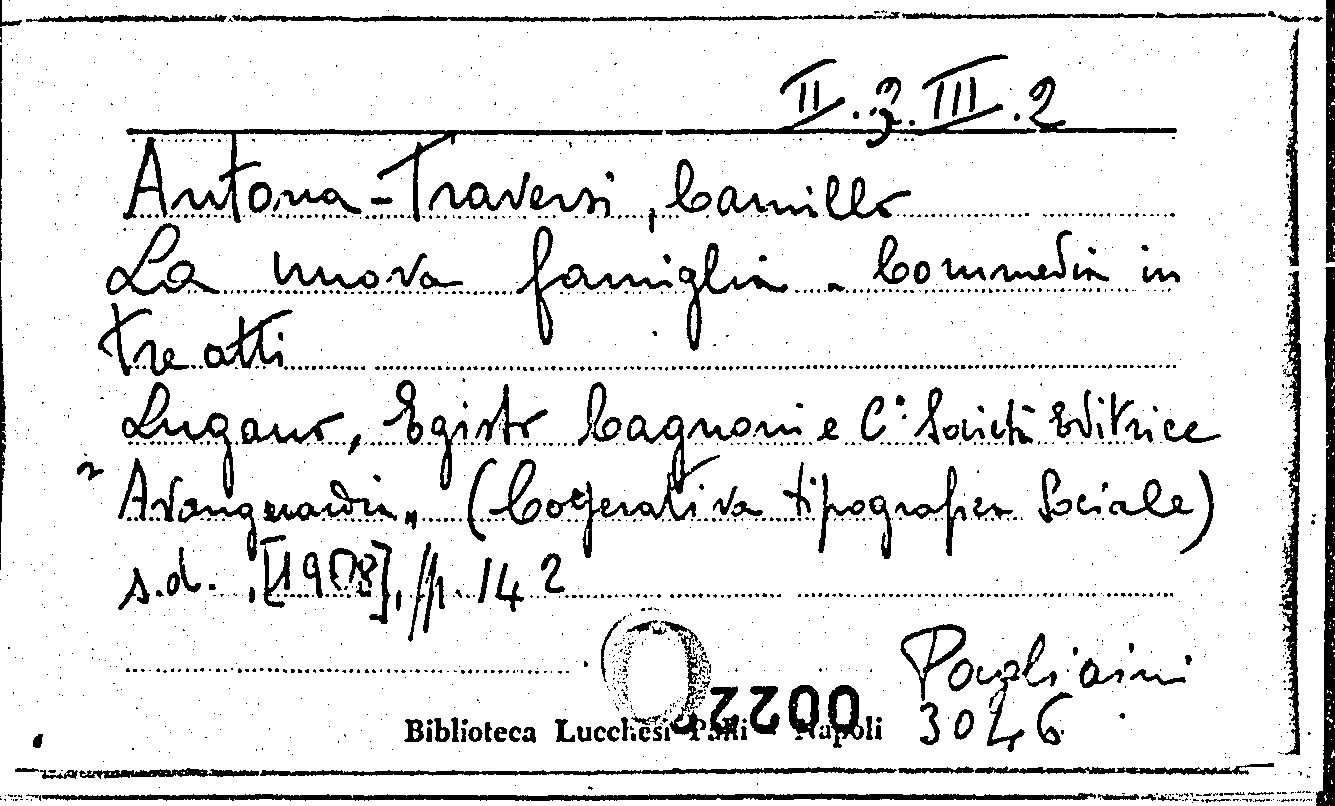 II.3.III.2
Antona-Traversi, Camillo
La nuova famiglia. Commedia in
tre atti
Lugano, Egisto Cagnoni e C° Società Editrice
"Avanguardia" (Cooperativa tipografica Sociale)
s.d. [1908], pp. 142
Pagliaini
3046
Biblioteca Lucchesi Palli - Napoli